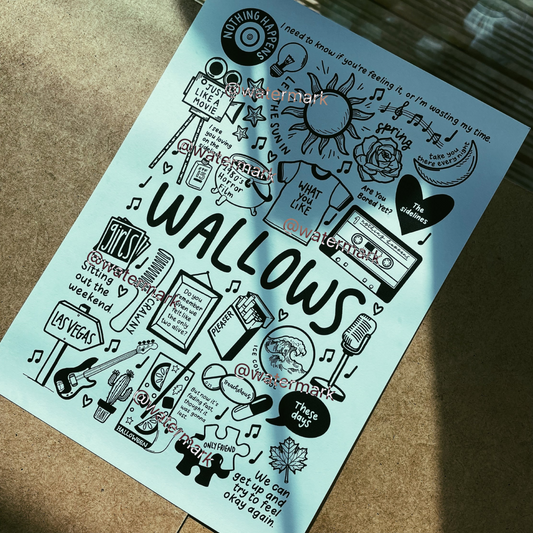 NOTHING HAPPENS
I need to know if you're feeling it, or I'm wasting my time.
JUST
LIKE A
MOVIE
@watermark
THE SUN IN
spring
take you
there everynight
I see
you loving
in the
@watermark
Horror
Film
WHAT
YOU
LIKE
Are You
Bored Yet?
The
sidelines
@watermark
nothing happens
WALLOWS
girls
@watermark
Sitting
out the
weekend.
SCRAWNY
Do you
remember
we felt
like
the only
two alive?
PLEASER
ICE COLD
@watermark
LAS VEGAS
But now it's
fading fast,
thought it
was gonna
last.
These
days
@watermark
HALLOWEEN
ONLY FRIEND
We can
get up and
try to feel
okay again.